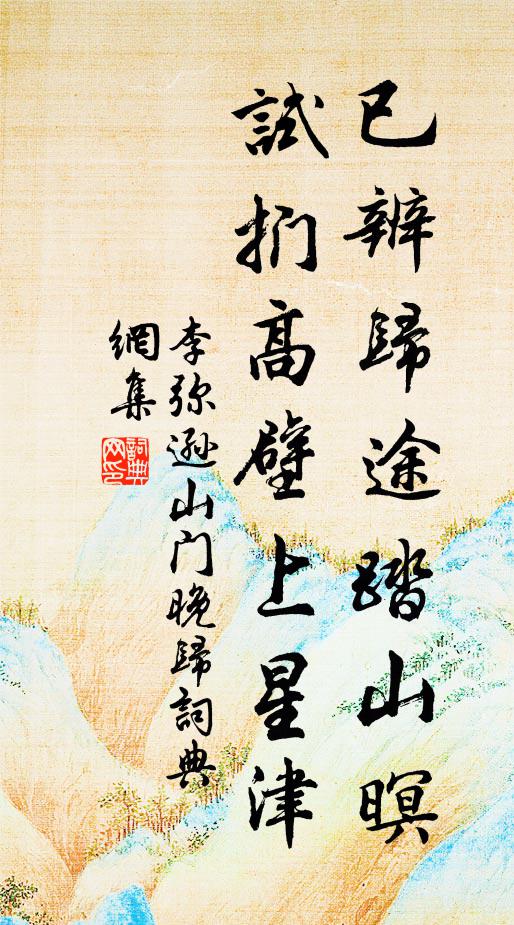 已辨歸途踏山暝
試捫高壁上星津
李弥遜山门晚歸詞典
網集
詞典網印